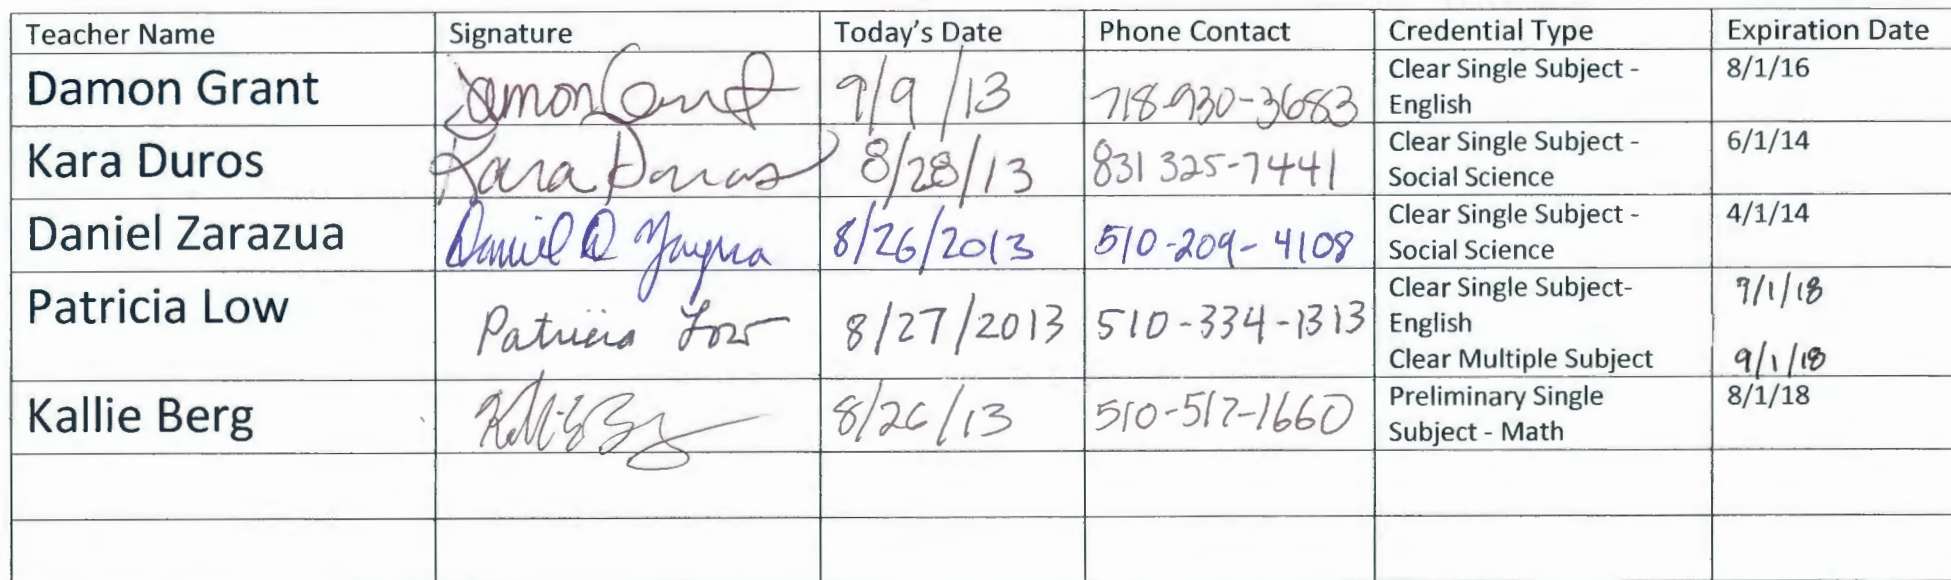 Teacher Name Signature Today's Date Phone Contact Credential Type Expiration Date
Damon Grant Damon Grant 9/9/13 718-930-3683 Clear Single Subject - 8/1/16
English
Kara Duros Kara Duros 8/28/13 831 325-7441 Clear Single Subject - 6/1/14
Social Science
Daniel Zarazua Daniel D 8/26/2013 510-209-4108 Clear Single Subject - 4/1/14
Social Science
Patricia Low Patricia Low 8/27/2013 510-334-1313 Clear Single Subject- 9/1/18
English
Clear Multiple Subject 9/1/18
Kallie Berg 8/26/13 510-517-1660 Preliminary Single 8/1/18
Subject - Math